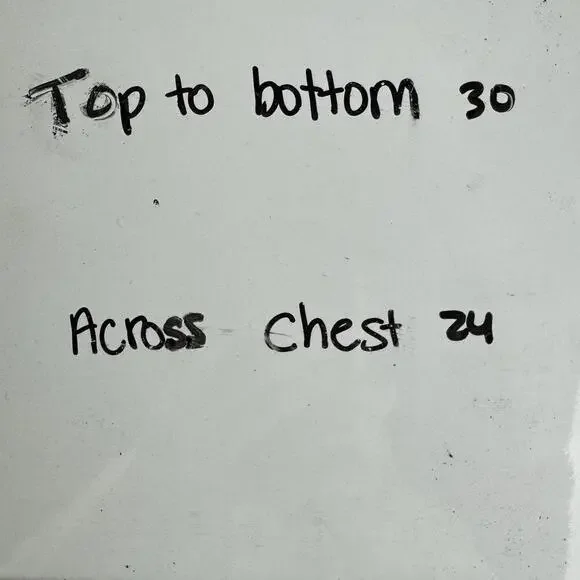 Top to bottom 30
Across Chest 24